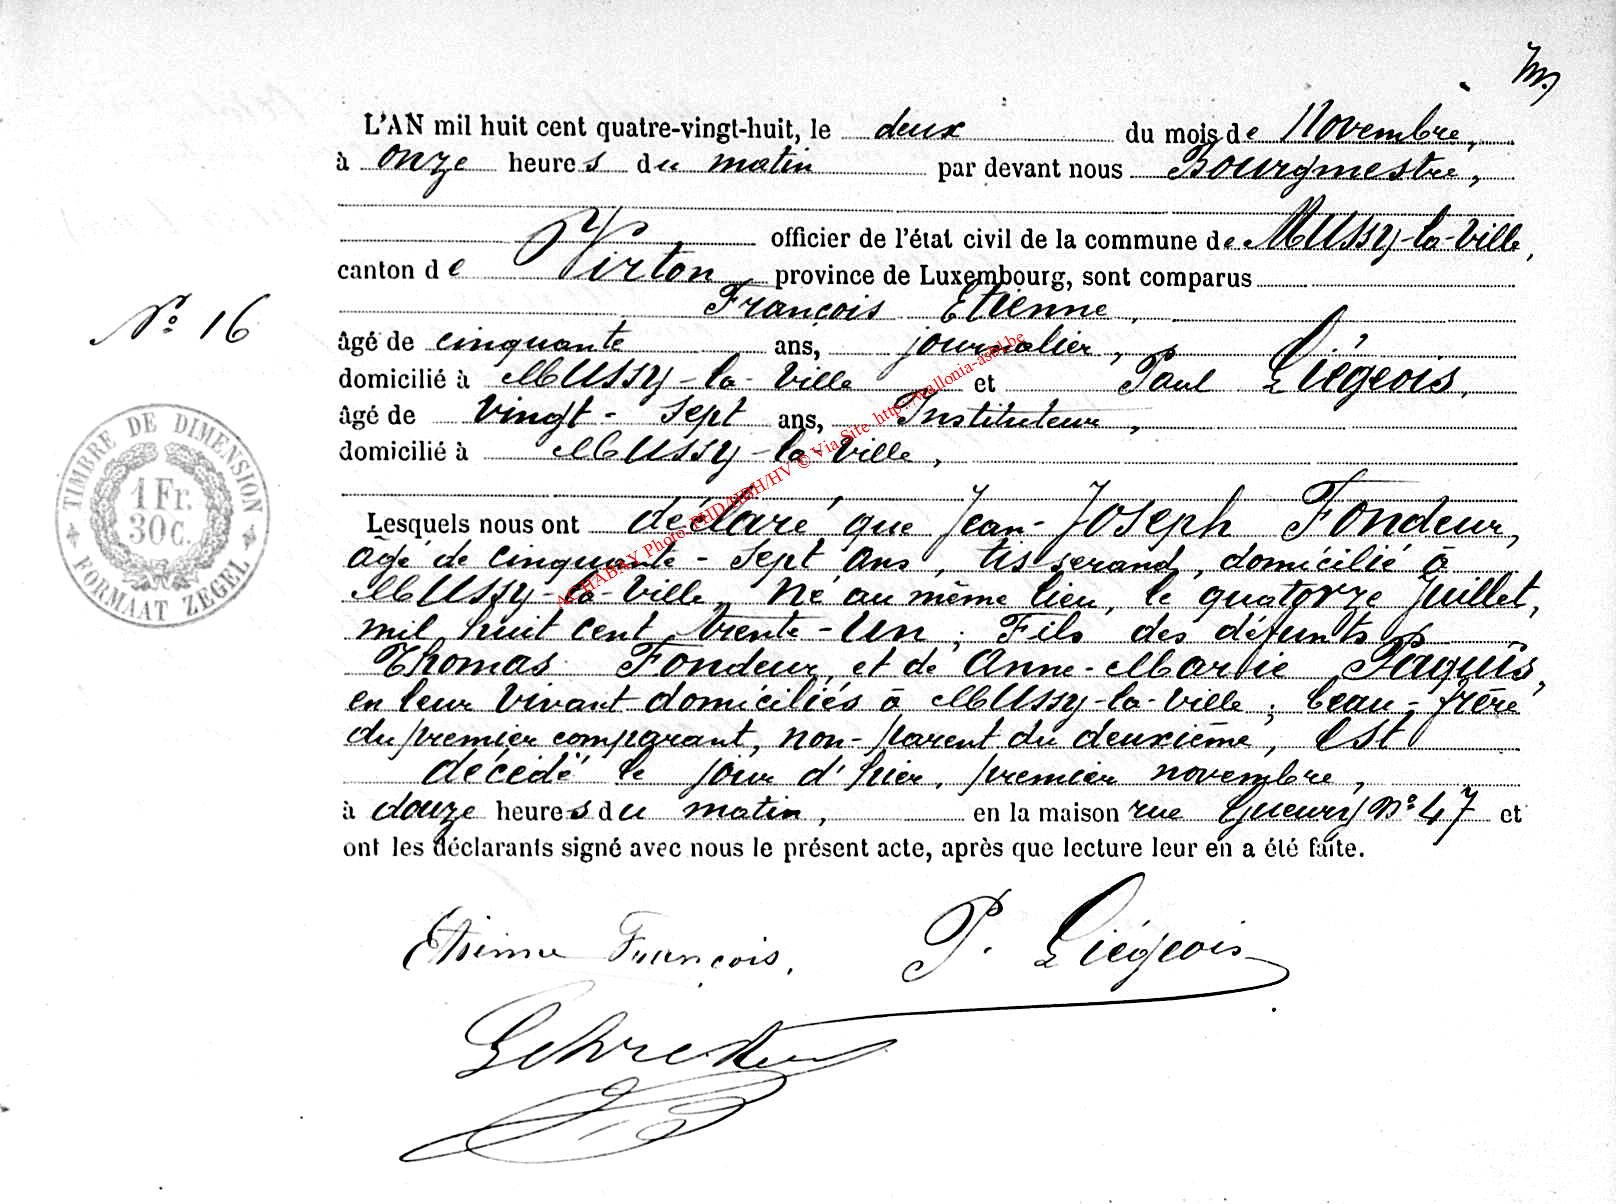 L'AN mil huit cent quatre-vingt-huit, le deux du mois de Novembre,
à onze heures du matin par devant nous Bourgmestre,
officier de l'état civil de la commune de Mussy-la-Ville,
canton de Virton province de Luxembourg, sont comparus
François Etienne,
N° 16
âgé de cinquante ans, journalier,
domicilié à Mussy-la-Ville et Paul Liégeois,
âgé de vingt-sept ans, Instituteur,
domicilié à Mussy-la-Ville,
TIMBRE DE DIMENSION
1 Fr.
30 C.
FORMAAT ZEGEL
ACHABAY Photo PHD/HBH/HV © Via Site http://wallonia-asbl.be
Lesquels nous ont déclaré que Jean-Joseph Fondeur,
âgé de cinquante-sept ans, tisserand, domicilié à
Mussy-la-Ville, né au même lieu, le quatorze Juillet,
mil huit cent trente-un; Fils des défunts
Thomas Fondeur, et de Anne-Marie Paquis,
en leur vivant domiciliés à Mussy-la-Ville; beau-frère
du premier comparant, non-parent du deuxième, est
décédé le jour d'hier, premier novembre,
à douze heures du matin, en la maison rue Gueury N° 47 et
ont les déclarants signé avec nous le présent acte, après que lecture leur en a été faite.
Etienne François. P. Liégeois